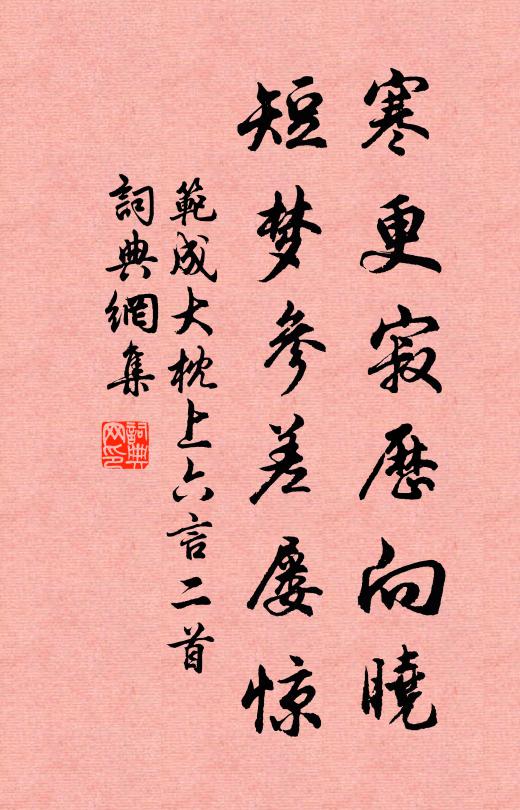 寒更寂歷向曉
短梦參差屡惊
範成大枕上六言二首
詞典網集
詞典网印